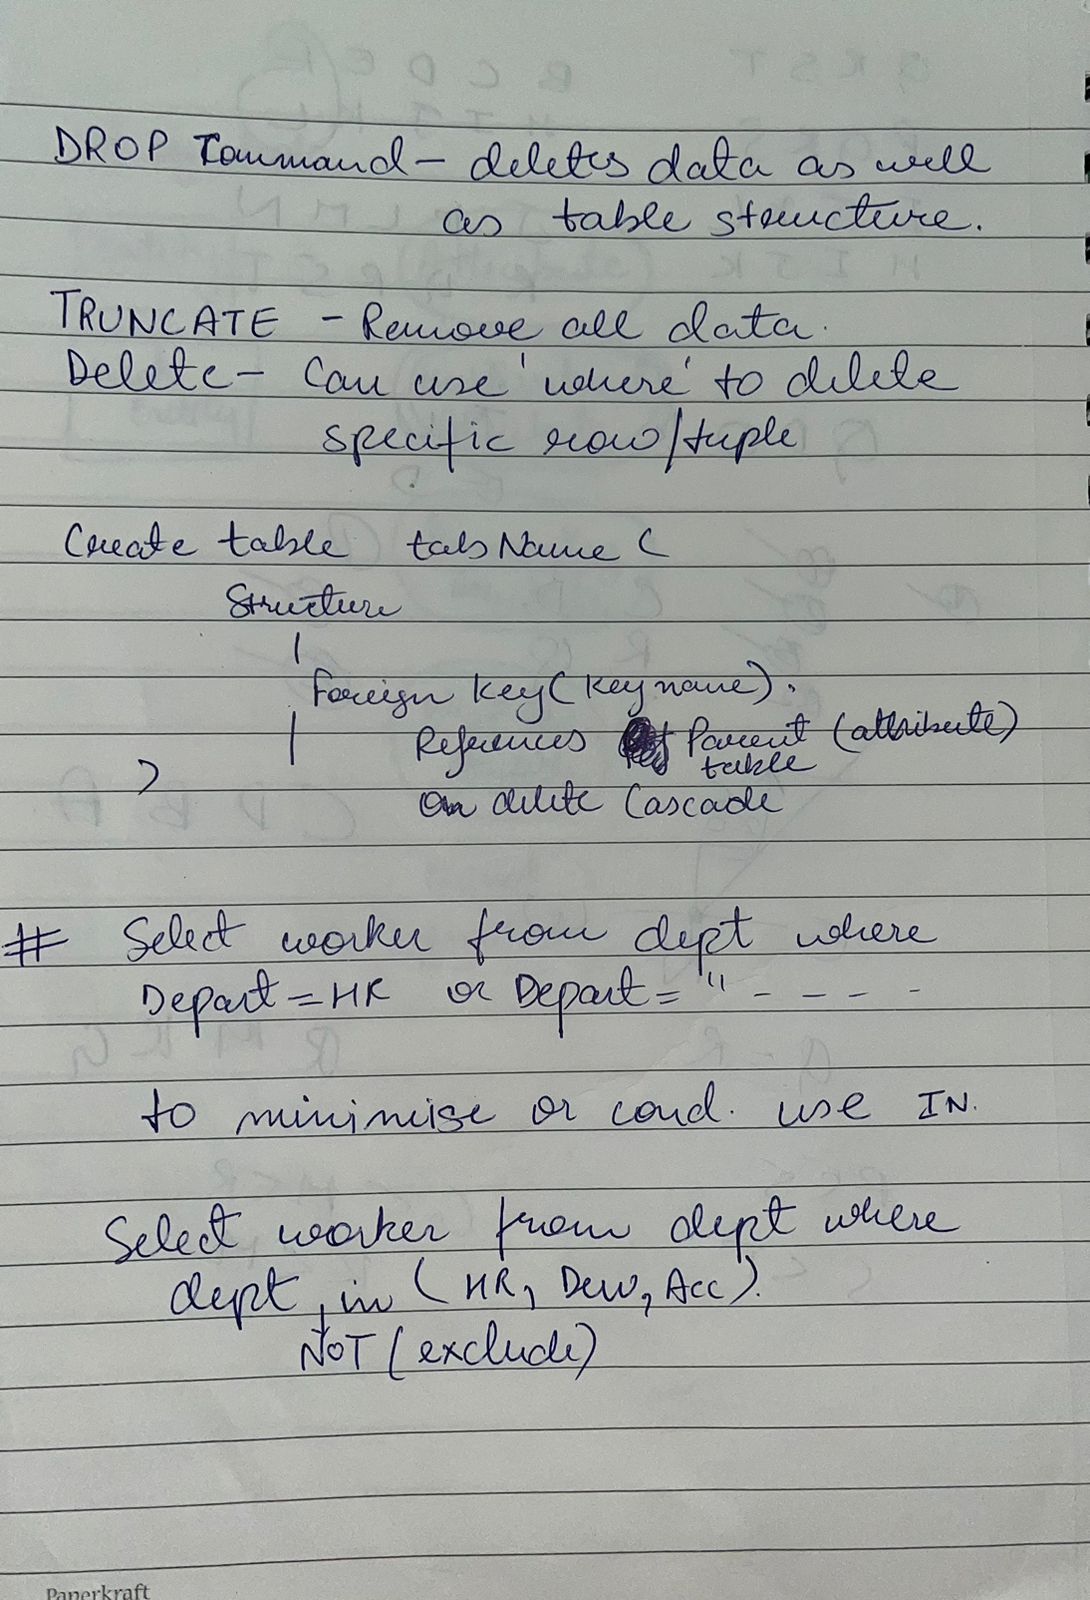 DROP Command - deletes data as well
as table structure.
TRUNCATE - Remove all data.
Delete - Can use 'where' to delete
specific row/tuple
Create table tabName (
Structure
Foreign key (keyname).
References Parent (attribute)
table
)
on delete Cascade
# Select worker from dept where
Depart = HR or Depart = " - - - -
to minimise or cond. use IN.
Select worker from dept where
dept in (HR, Dew, Acc).
NOT (exclude)
Paperkraft